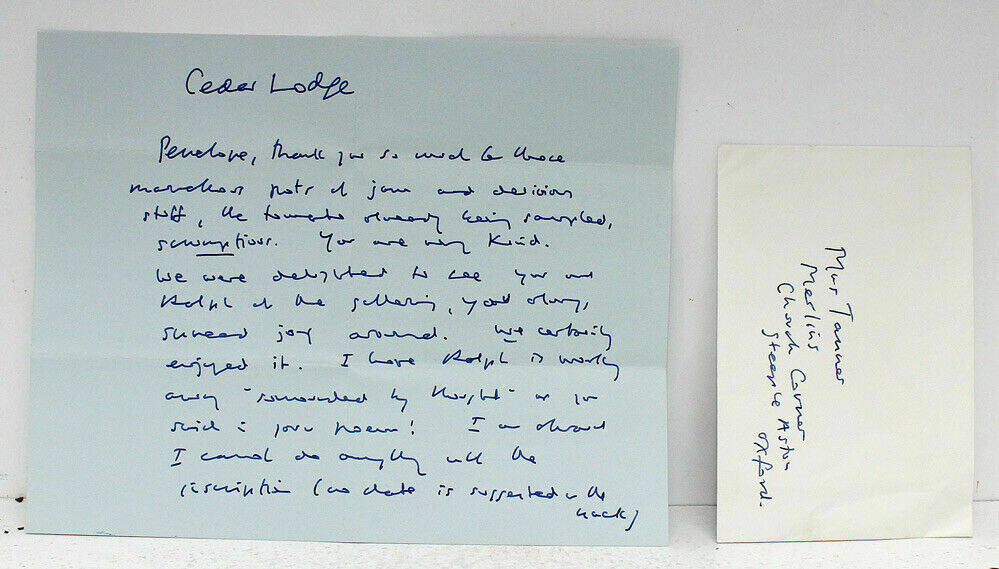 Cedar Lodge
Penelope, thank you so much for those
marvellous pots of jam and delicious
stuff, the tomato already being sampled,
scrumptious. You are very kind.
We were delighted to see you and
Ralph at the gathering, you always
spread joy around. We certainly
enjoyed it. I hope Ralph is working
away "surrounded by thought" as you
said in your poem! I am afraid
I cannot do anything with the
inscription (no date is suggested in the
back)
Mrs Tanner
Merlins
Church Corner
Steeple Aston
Oxford.